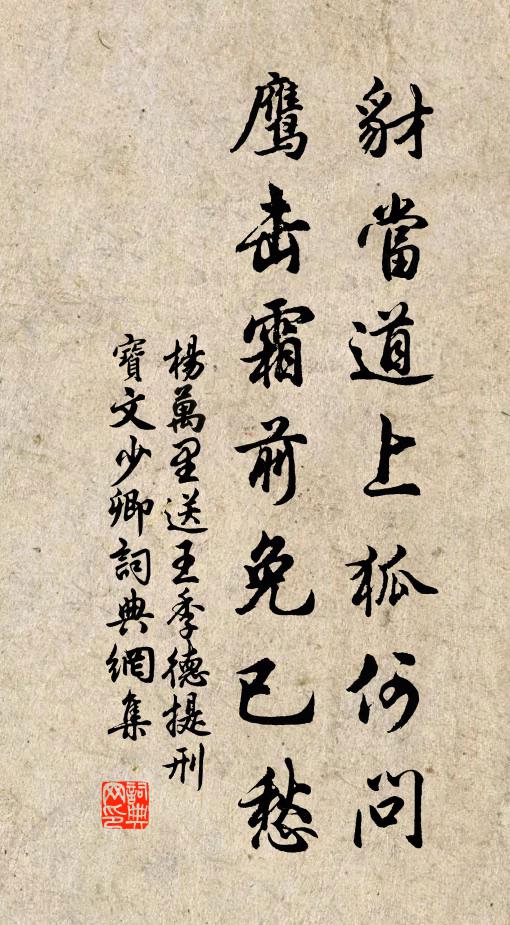 豺當道上狐何問
鷹击霜前免已愁
楊萬里送王季德提刑
寶文少卿詞典網集
詞典
网印